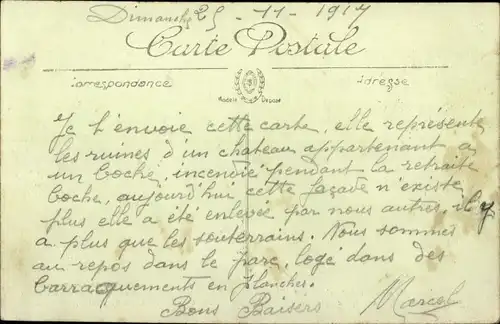 Dimanche 25-11-1917
Carte Postale
Correspondance
Adresse
Modèle Déposé
Je t'envoie cette carte, elle représente
les ruines d'un chateau appartenant a
un boche, incendié pendant la retraite
boche, aujourd'hui cette façade n'existe
plus elle a été enlevée par nous autres, il y
a plus que les souterrains. Nous sommes
au repos dans le parc, logé dans des
barraquements en planches.
Bons Baisers
Marcel